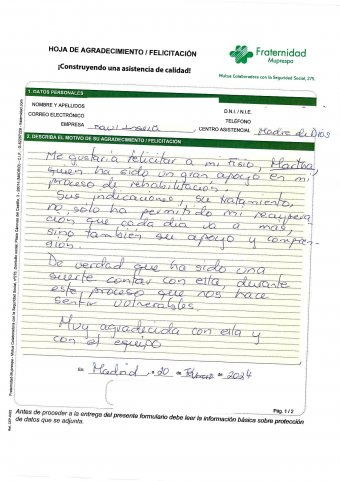 HOJA DE AGRADECIMIENTO / FELICITACIÓN
¡Construyendo una asistencia de calidad!
Fraternidad
Muprespa
Mutua Colaboradora con la Seguridad Social, 275.
1. DATOS PERSONALES
NOMBRE Y APELLIDOS
D.N.I. / N.I.E.
CORREO ELECTRÓNICO
TELÉFONO
EMPRESA
CENTRO ASISTENCIAL Madre de Dios
2. DESCRIBA EL MOTIVO DE SU AGRADECIMIENTO / FELICITACIÓN
Me gustaría felicitar a mi fisio, Martha,
quien ha sido un gran apoyo en mi
proceso de rehabilitación.
Sus indicaciones, su tratamiento,
no solo ha permitido mi recupera
ción que cada día va a más,
sino también su apoyo y compren-
sión.
De verdad que ha sido una
suerte contar con ella, durante
este proceso que nos hace
sentir vulnerables.
Muy agradecida con ella y
con el equipo
En Madrid a 20 de Febrero de 2024
Pág. 1 / 2
Antes de proceder a la entrega del presente formulario debe leer la información básica sobre protección
de datos que se adjunta.